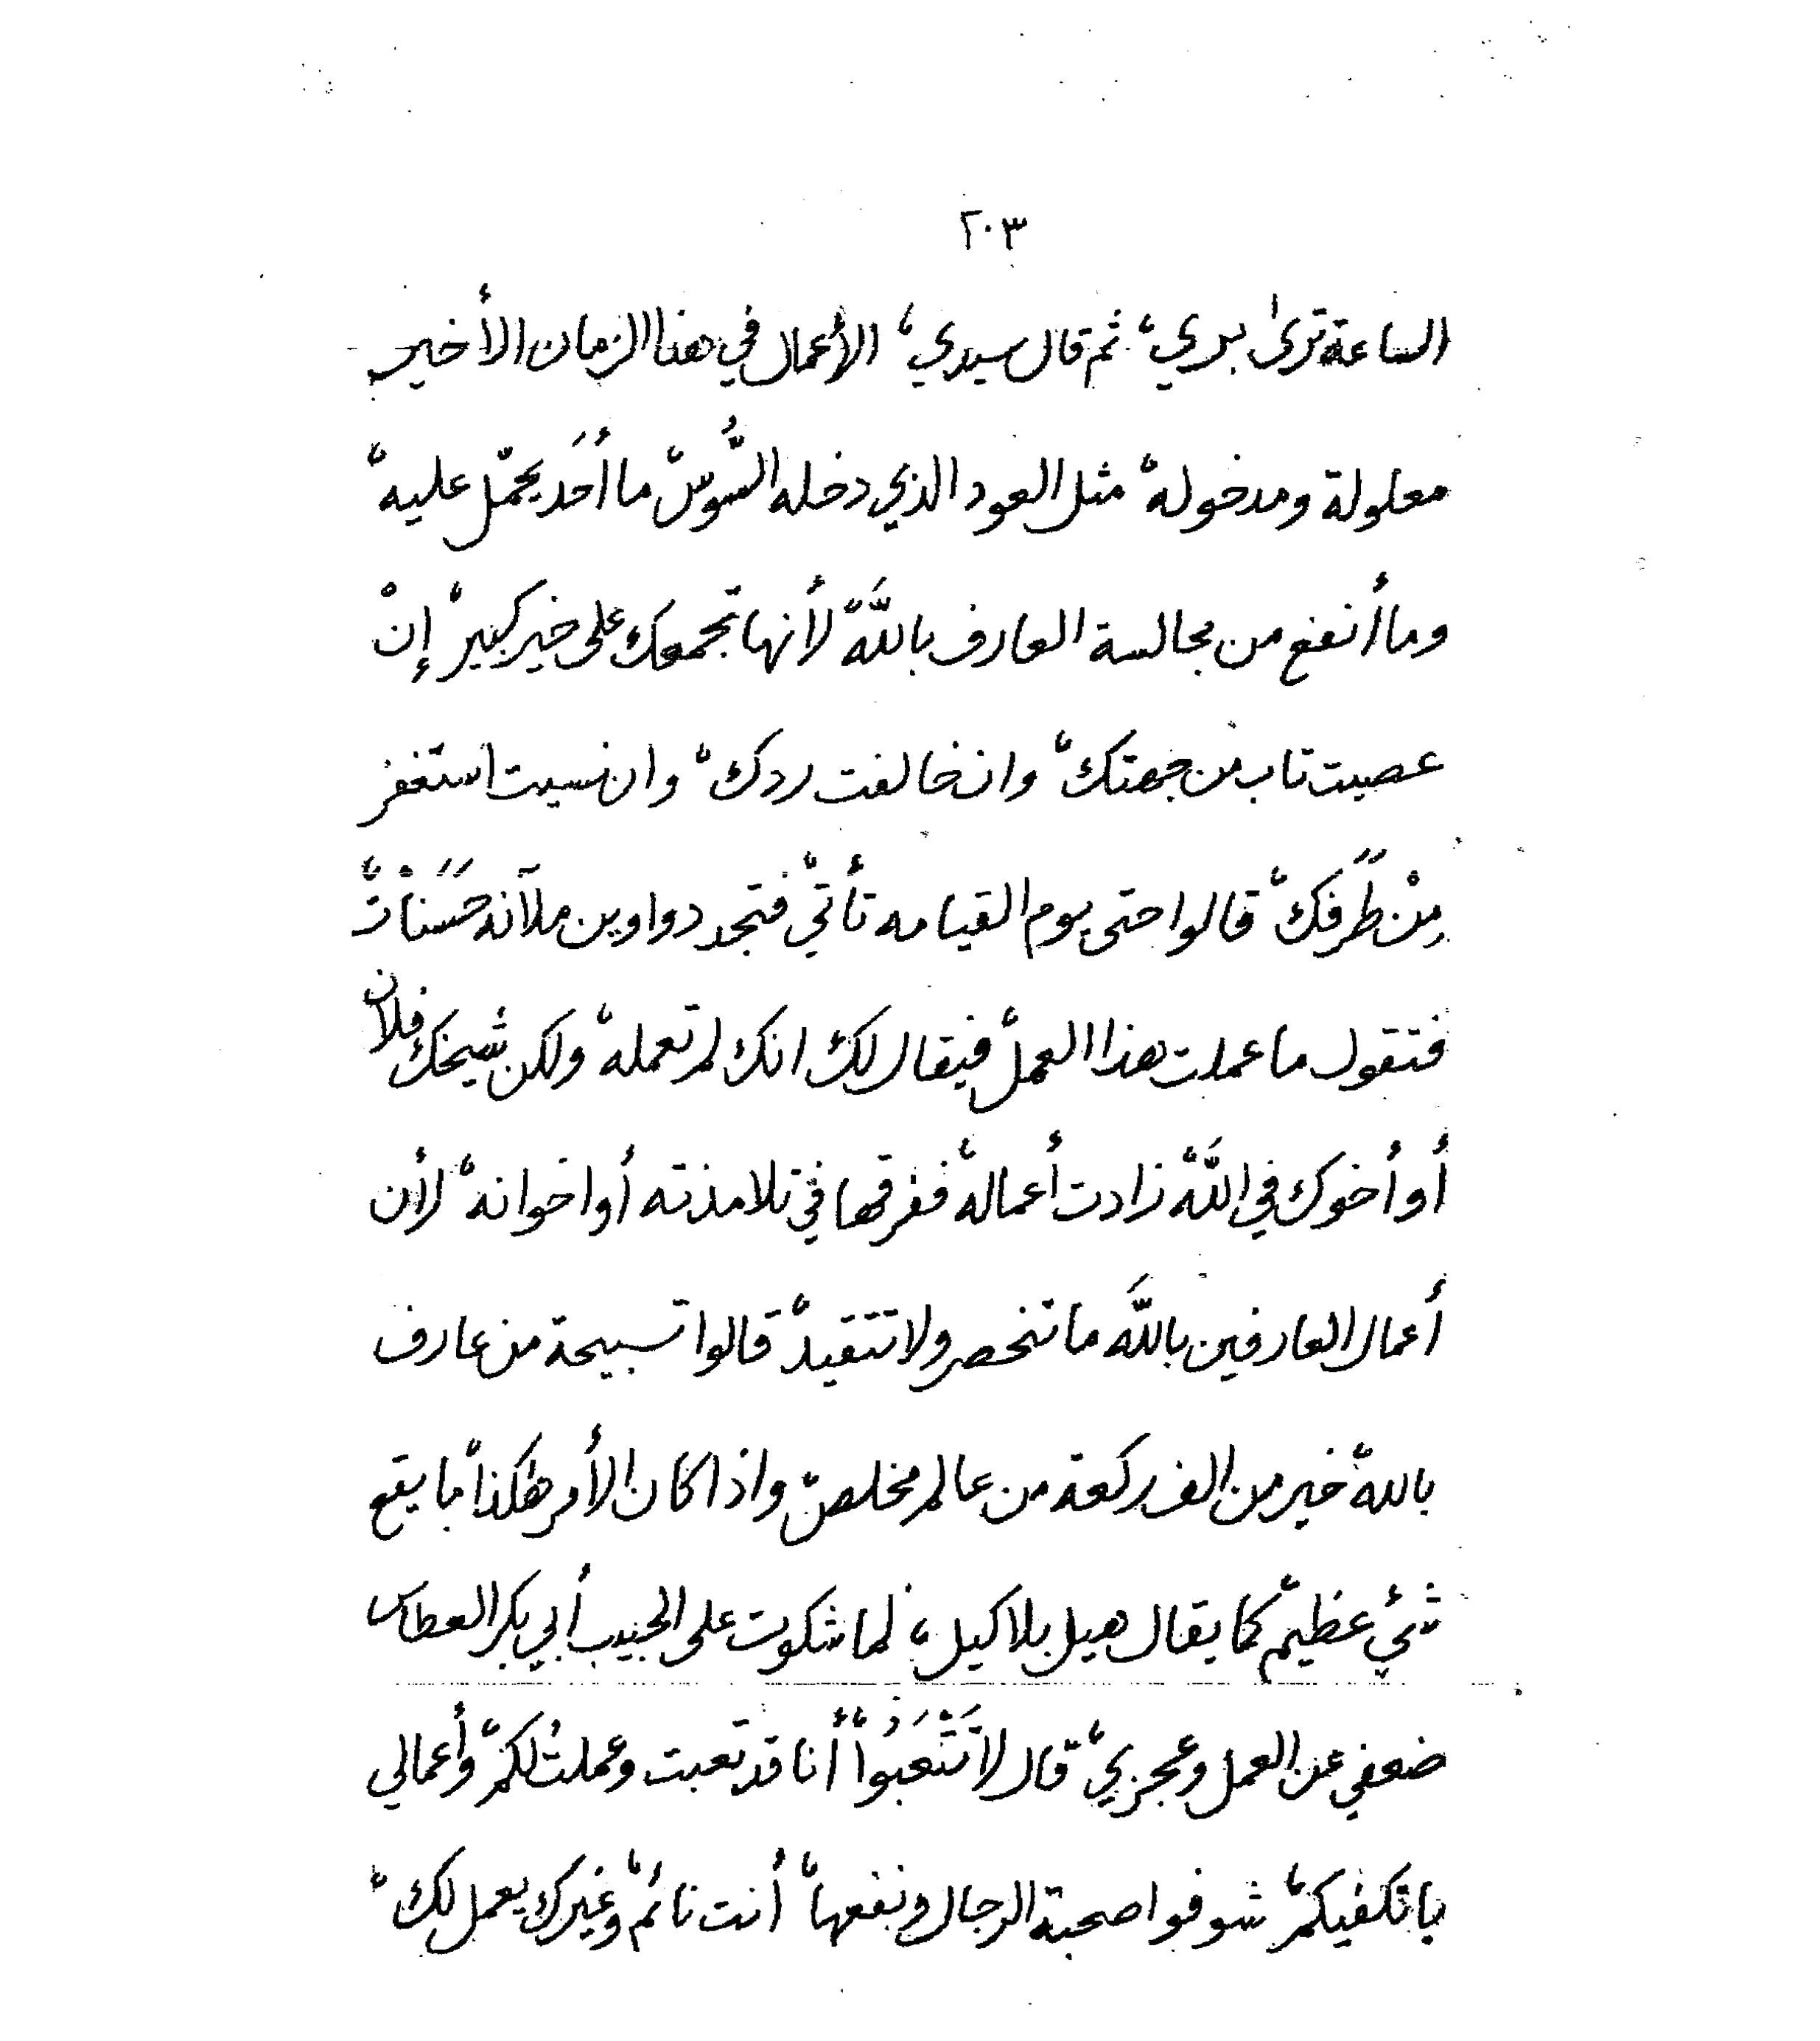 ٢٠٣
الساعة ترى بري، ثم قال سيدي، الأعمال في هذا الزمان الأخير
معلولة ومدخولة، مثل العود الذي دخله السُّوس، ما أَحَد يحمّل عليه،
وما أنفع من مجالسة العارف باللَّه، لأنها تجمعك على خير كبير، إنْ
عصيت تاب من جهتك، وان خالفت ردك، وان نسيت استغفر
مِنْ طَرَفَك، قالوا حتى يوم القيامه تأتي، فتجد دواوين ملآنه حَسَنَاتْ،
فتقول ما عملت هذا العمل، فيقال لك انك لم تعمله، ولكن شيخك فلان
أو أخوك في اللَّه، زادت أعماله، ففرقها في تلامذته أو اخوانه، لأن
أعمال العارفين باللَّه ما تنحصر ولا تتقيد، قالوا تسبيحة من عارف
بالله، خير من الف ركعة من عالم مخلص، واذا كان الأمر هكذا، با يقع
شئ عظيم، كما يقال هيل بلا كيل، لما شكوت على الحبيب أبي بكر العطاس
ضعفي عن العمل وعجزي، قال لا تَتْعَبُوا، أنا قد تعبت وعملتُ لكم، وأعمالي
با تكفيكم، شوفوا صحبة الرجال ونفعها، أنت نائم، وغيرك يعمل لك،